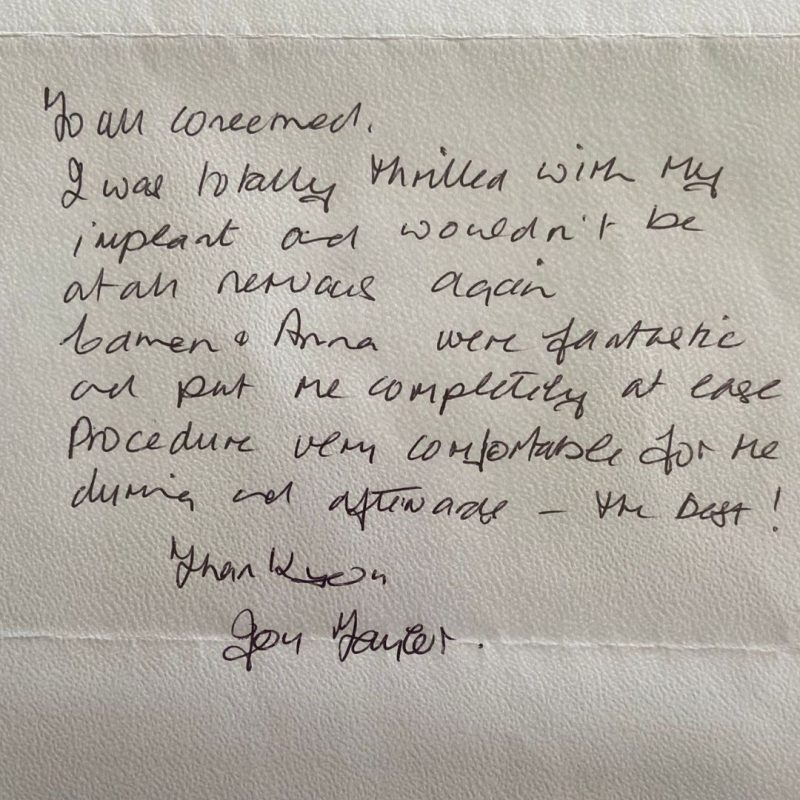 To all concerned.
I was totally thrilled with my
implant and wouldn't be
at all nervous again
& Anna were fantastic
and put me completely at ease
Procedure very comfortable for me
during and afterwards – the best!
Thank you